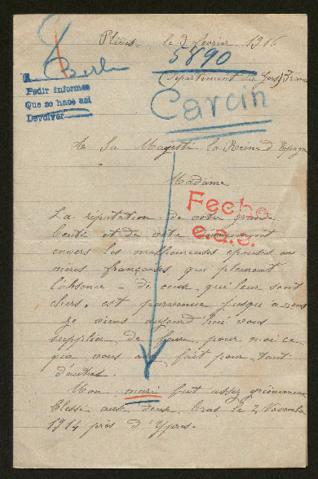 Pleias le 2 février 1916
5890
(Département du Gers) France
a Berlin
Pedir informes
Que se hace asi
Devolver
Carcin
A Sa Majesté la Reine d'Espagne
Madame
Fecho
e.a.s.
La réputation de votre grande
bonté et de votre
envers les malheureuses épouses ou
mères françaises qui pleurent
l'absence de ceux qui leur sont
chers, est parvenue jusqu'à nous
Je viens aujourd'hui vous
supplier de faire pour moi ce
que vous avez fait pour tant
d'autres.
Mon mari fut assez grièvement
blessé aux deux bras le 2 Novembre
1914 près d'Ypres.